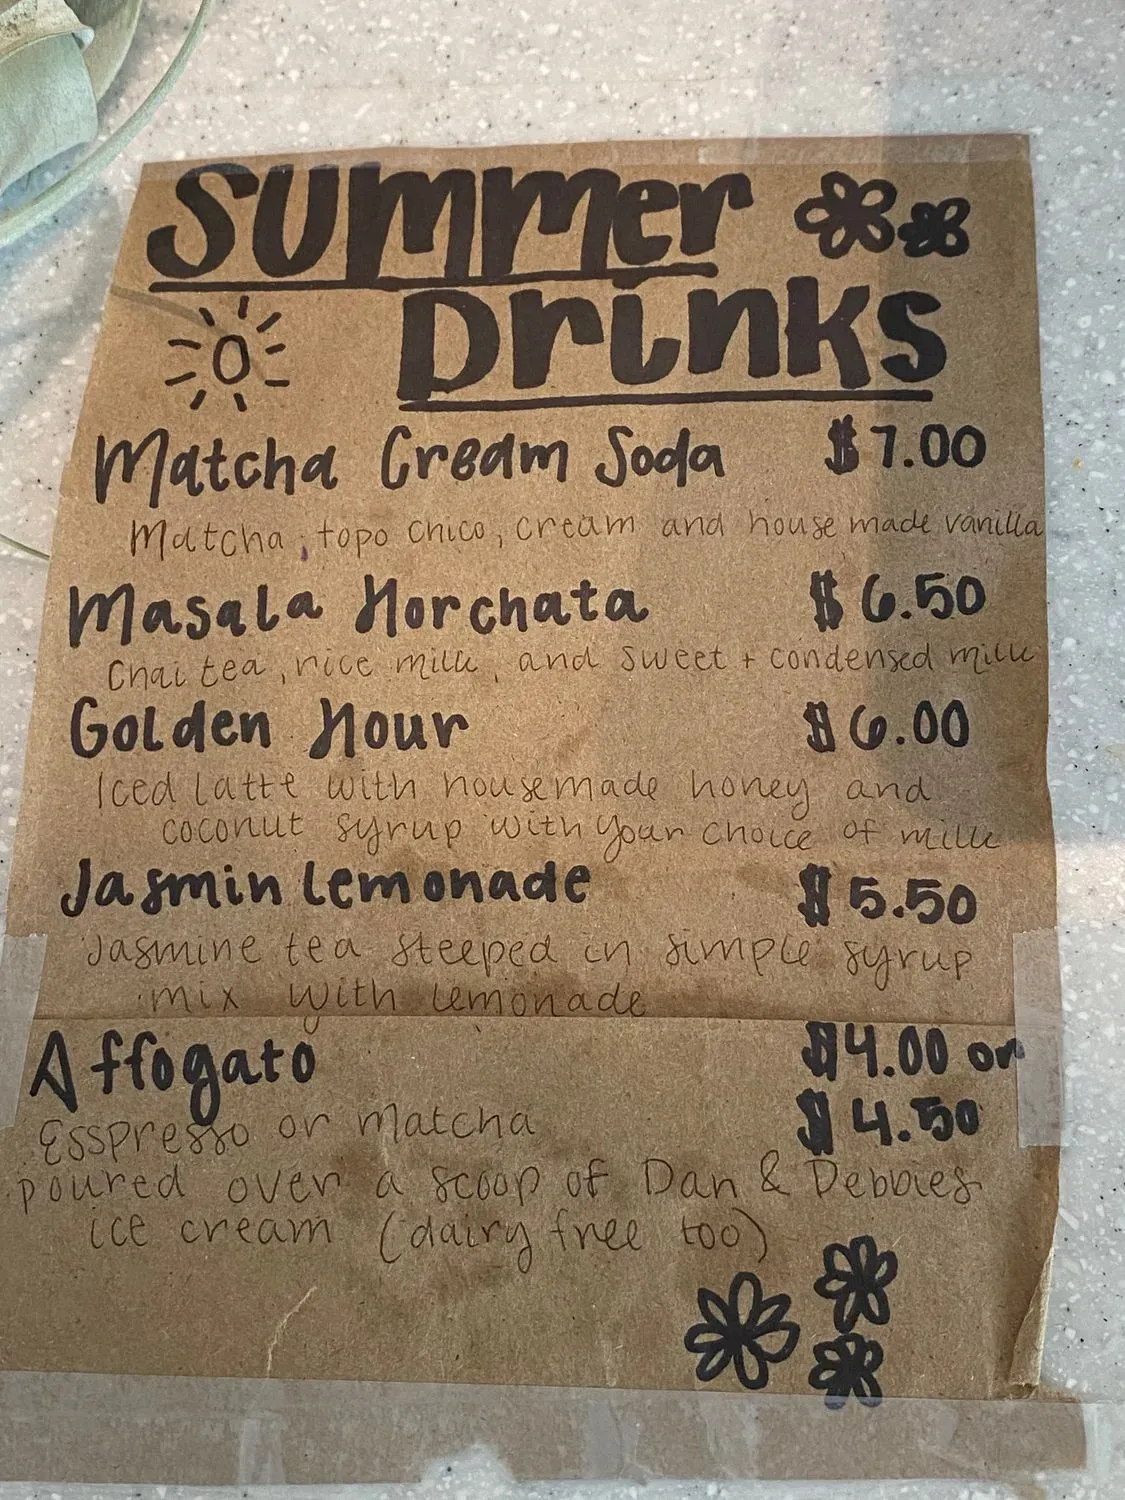 Summer
Drinks
Matcha Cream Soda $7.00
Matcha, topo chico, cream and house made vanilla
Masala Horchata $6.50
Chai tea, rice milk, and sweet + condensed milk
Golden Hour $6.00
Iced latte with housemade honey and
coconut syrup with your choice of milk
Jasmin Lemonade $5.50
Jasmine tea steeped in simple syrup
mix with lemonade
Affogato $4.00 or
$4.50
Esspresso or Matcha
poured over a scoop of Dan & Debbies
ice cream (dairy free too)